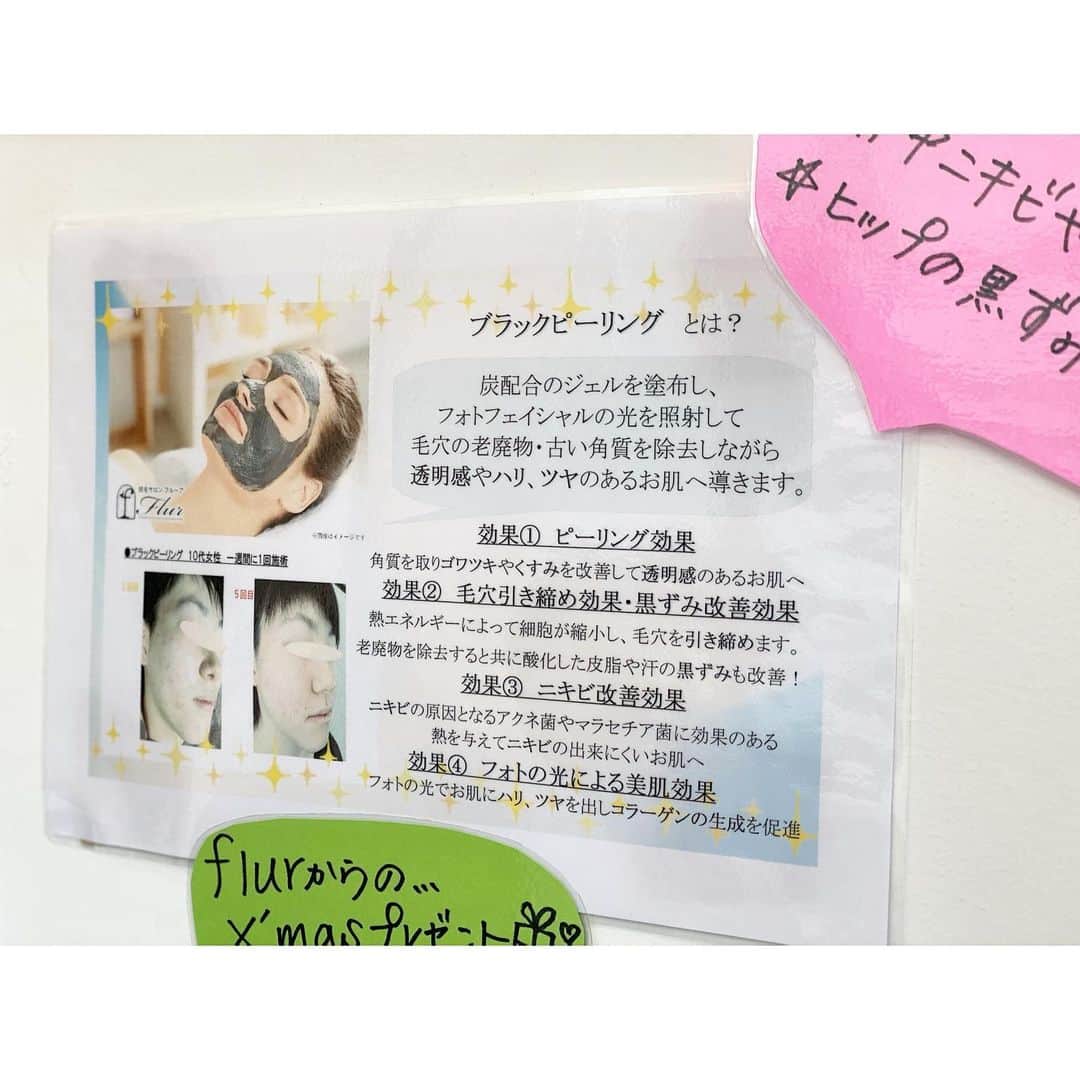 中ニキビや
☆ヒップの黒ずみ
ブラックピーリング とは？
炭配合のジェルを塗布し、
フォトフェイシャルの光を照射して
毛穴の老廃物・古い角質を除去しながら
透明感やハリ、ツヤのあるお肌へ導きます。
脱毛サロン フルーア
f.Flur
※画像はイメージです
●ブラックピーリング 10代女性 一週間に1回施術
1回目
5回目
効果① ピーリング効果
角質を取りゴワツキやくすみを改善して透明感のあるお肌へ
効果② 毛穴引き締め効果・黒ずみ改善効果
熱エネルギーによって細胞が縮小し、毛穴を引き締めます。
老廃物を除去すると共に酸化した皮脂や汗の黒ずみも改善！
効果③ ニキビ改善効果
ニキビの原因となるアクネ菌やマラセチア菌に効果のある
熱を与えてニキビの出来にくいお肌へ
効果④ フォトの光による美肌効果
フォトの光でお肌にハリ、ツヤを出しコラーゲンの生成を促進
flurからの…
X'masプレゼント♡